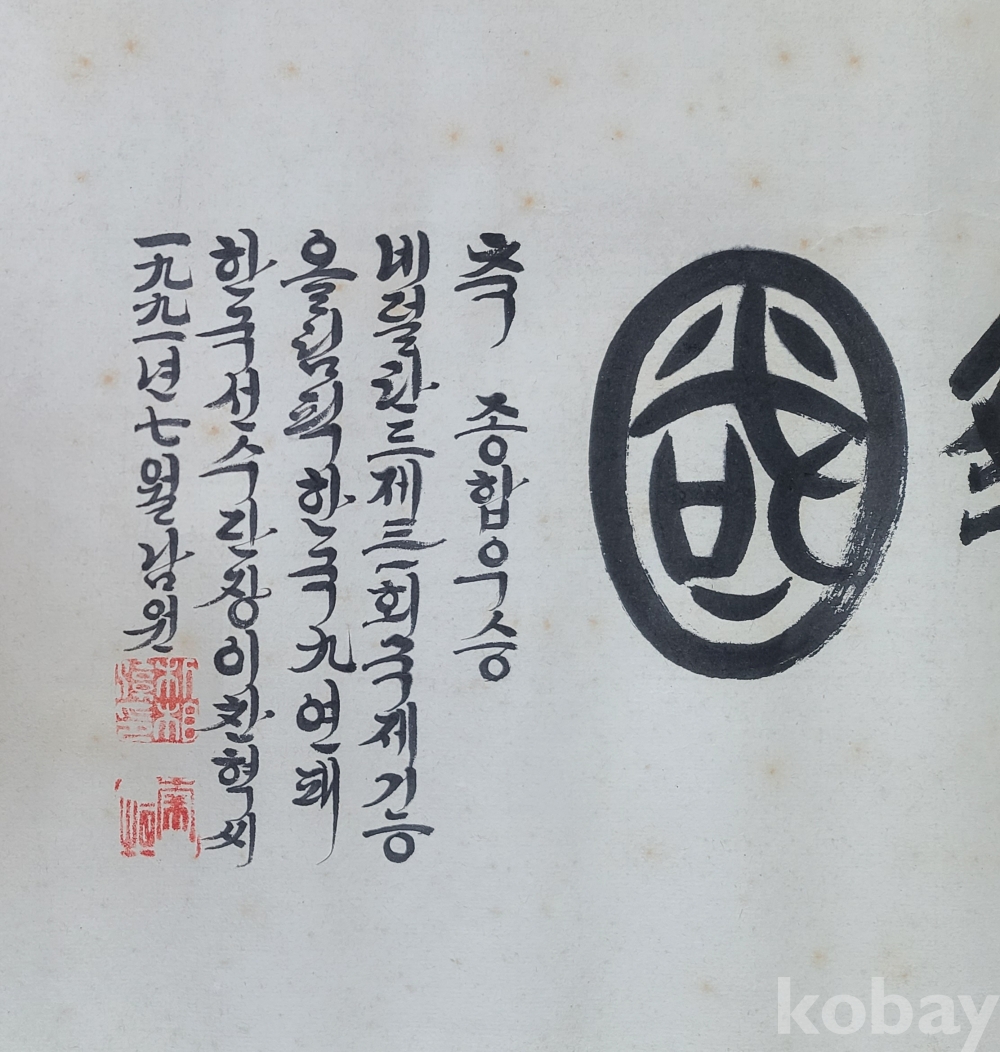 國
축 종합우승
네덜란드제三一회국제기능
올림픽한국九연패
한국선수단장이찬혁씨
一九九一년七월남원
kobay